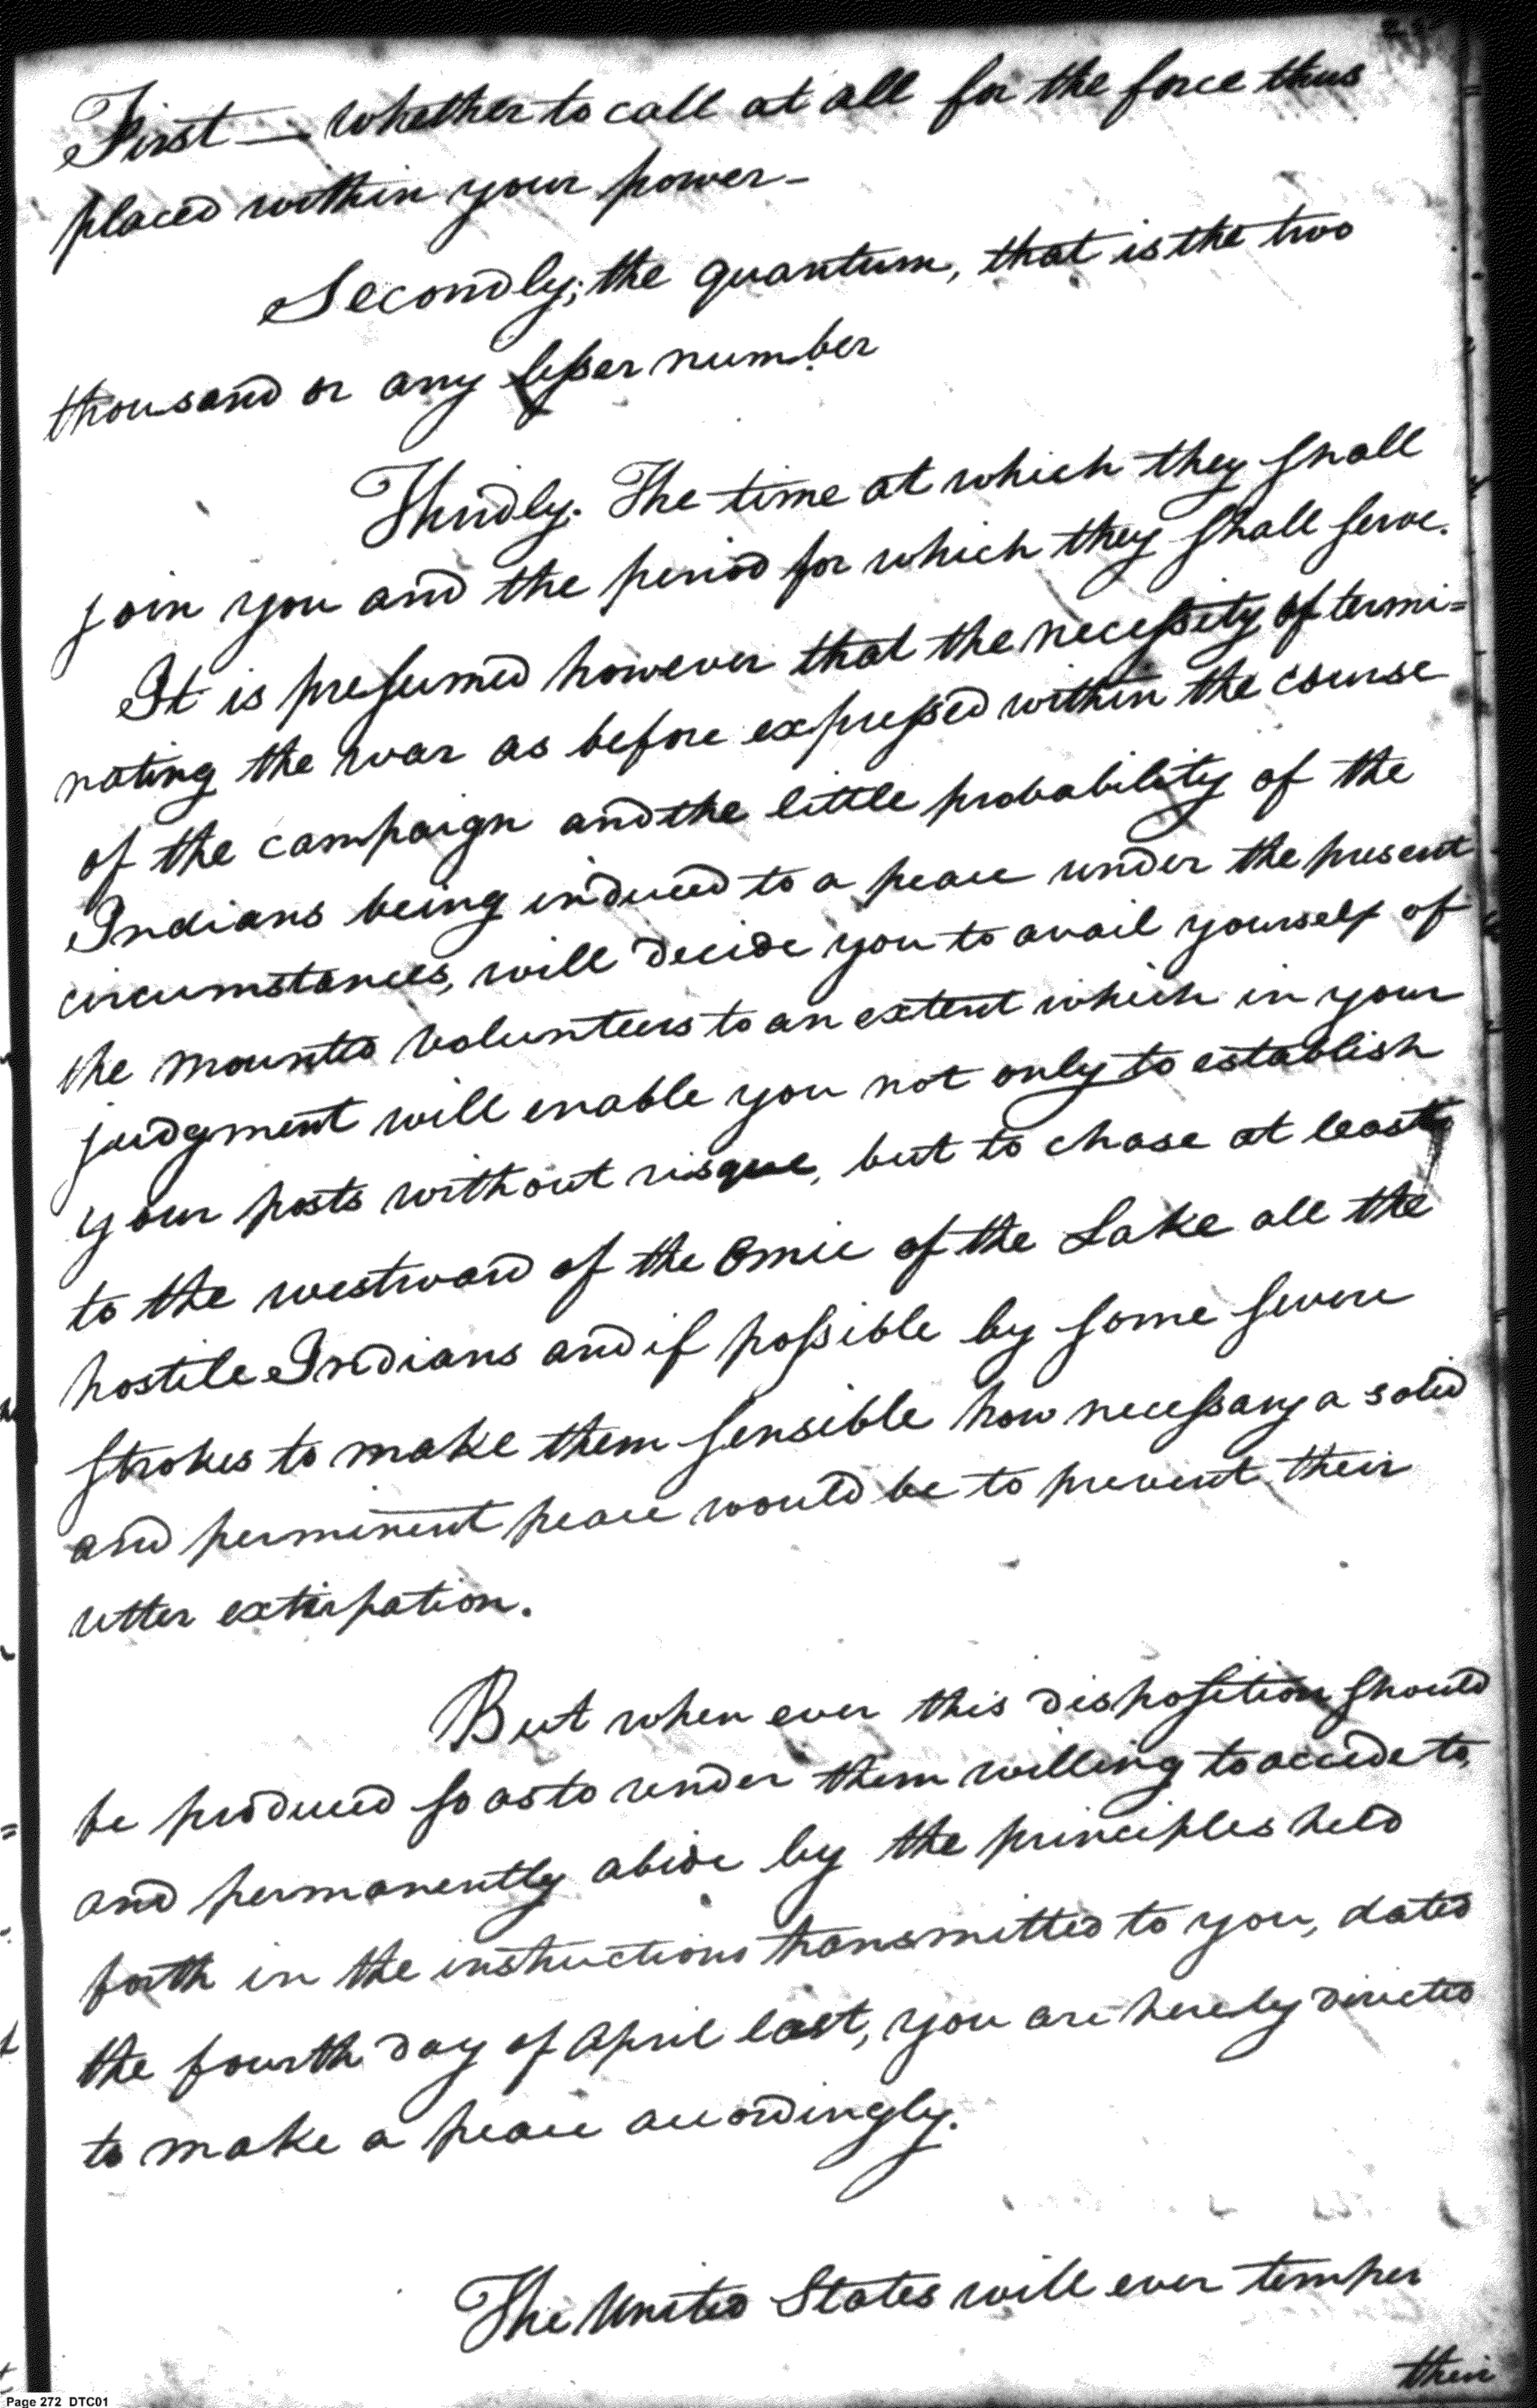 First — whether to call at all for the force thus
placed within your power -
Secondly; the quantum, that is the two
thousand or any lesser number
Thirdly. The time at which they shall
join you and the period for which they shall serve.
It is presumed however that the necessity of termi=
nating the war as before expressed within the course
of the campaign and the little probability of the
Indians being induced to a peace under the present
circumstances, will decide you to avail yourself of
the mounted volunteers to an extent which in your
judgment will enable you not only to establish
your posts without risque, but to chase at least
to the westward of the Omie of the Lake all the
hostile Indians and if possible by some severe
strokes to make them sensible how necessary a solid
and perminent peace would be to prevent their
utter extirpation.
But when ever this disposition should
be produced so as to render them willing to accede to,
and permanently abide by the principles held
forth in the instructions transmitted to you, dated
the fourth day of April last, you are hereby directed
to make a peace accordingly.
The United States will ever temper
their
Page 272 DTC01